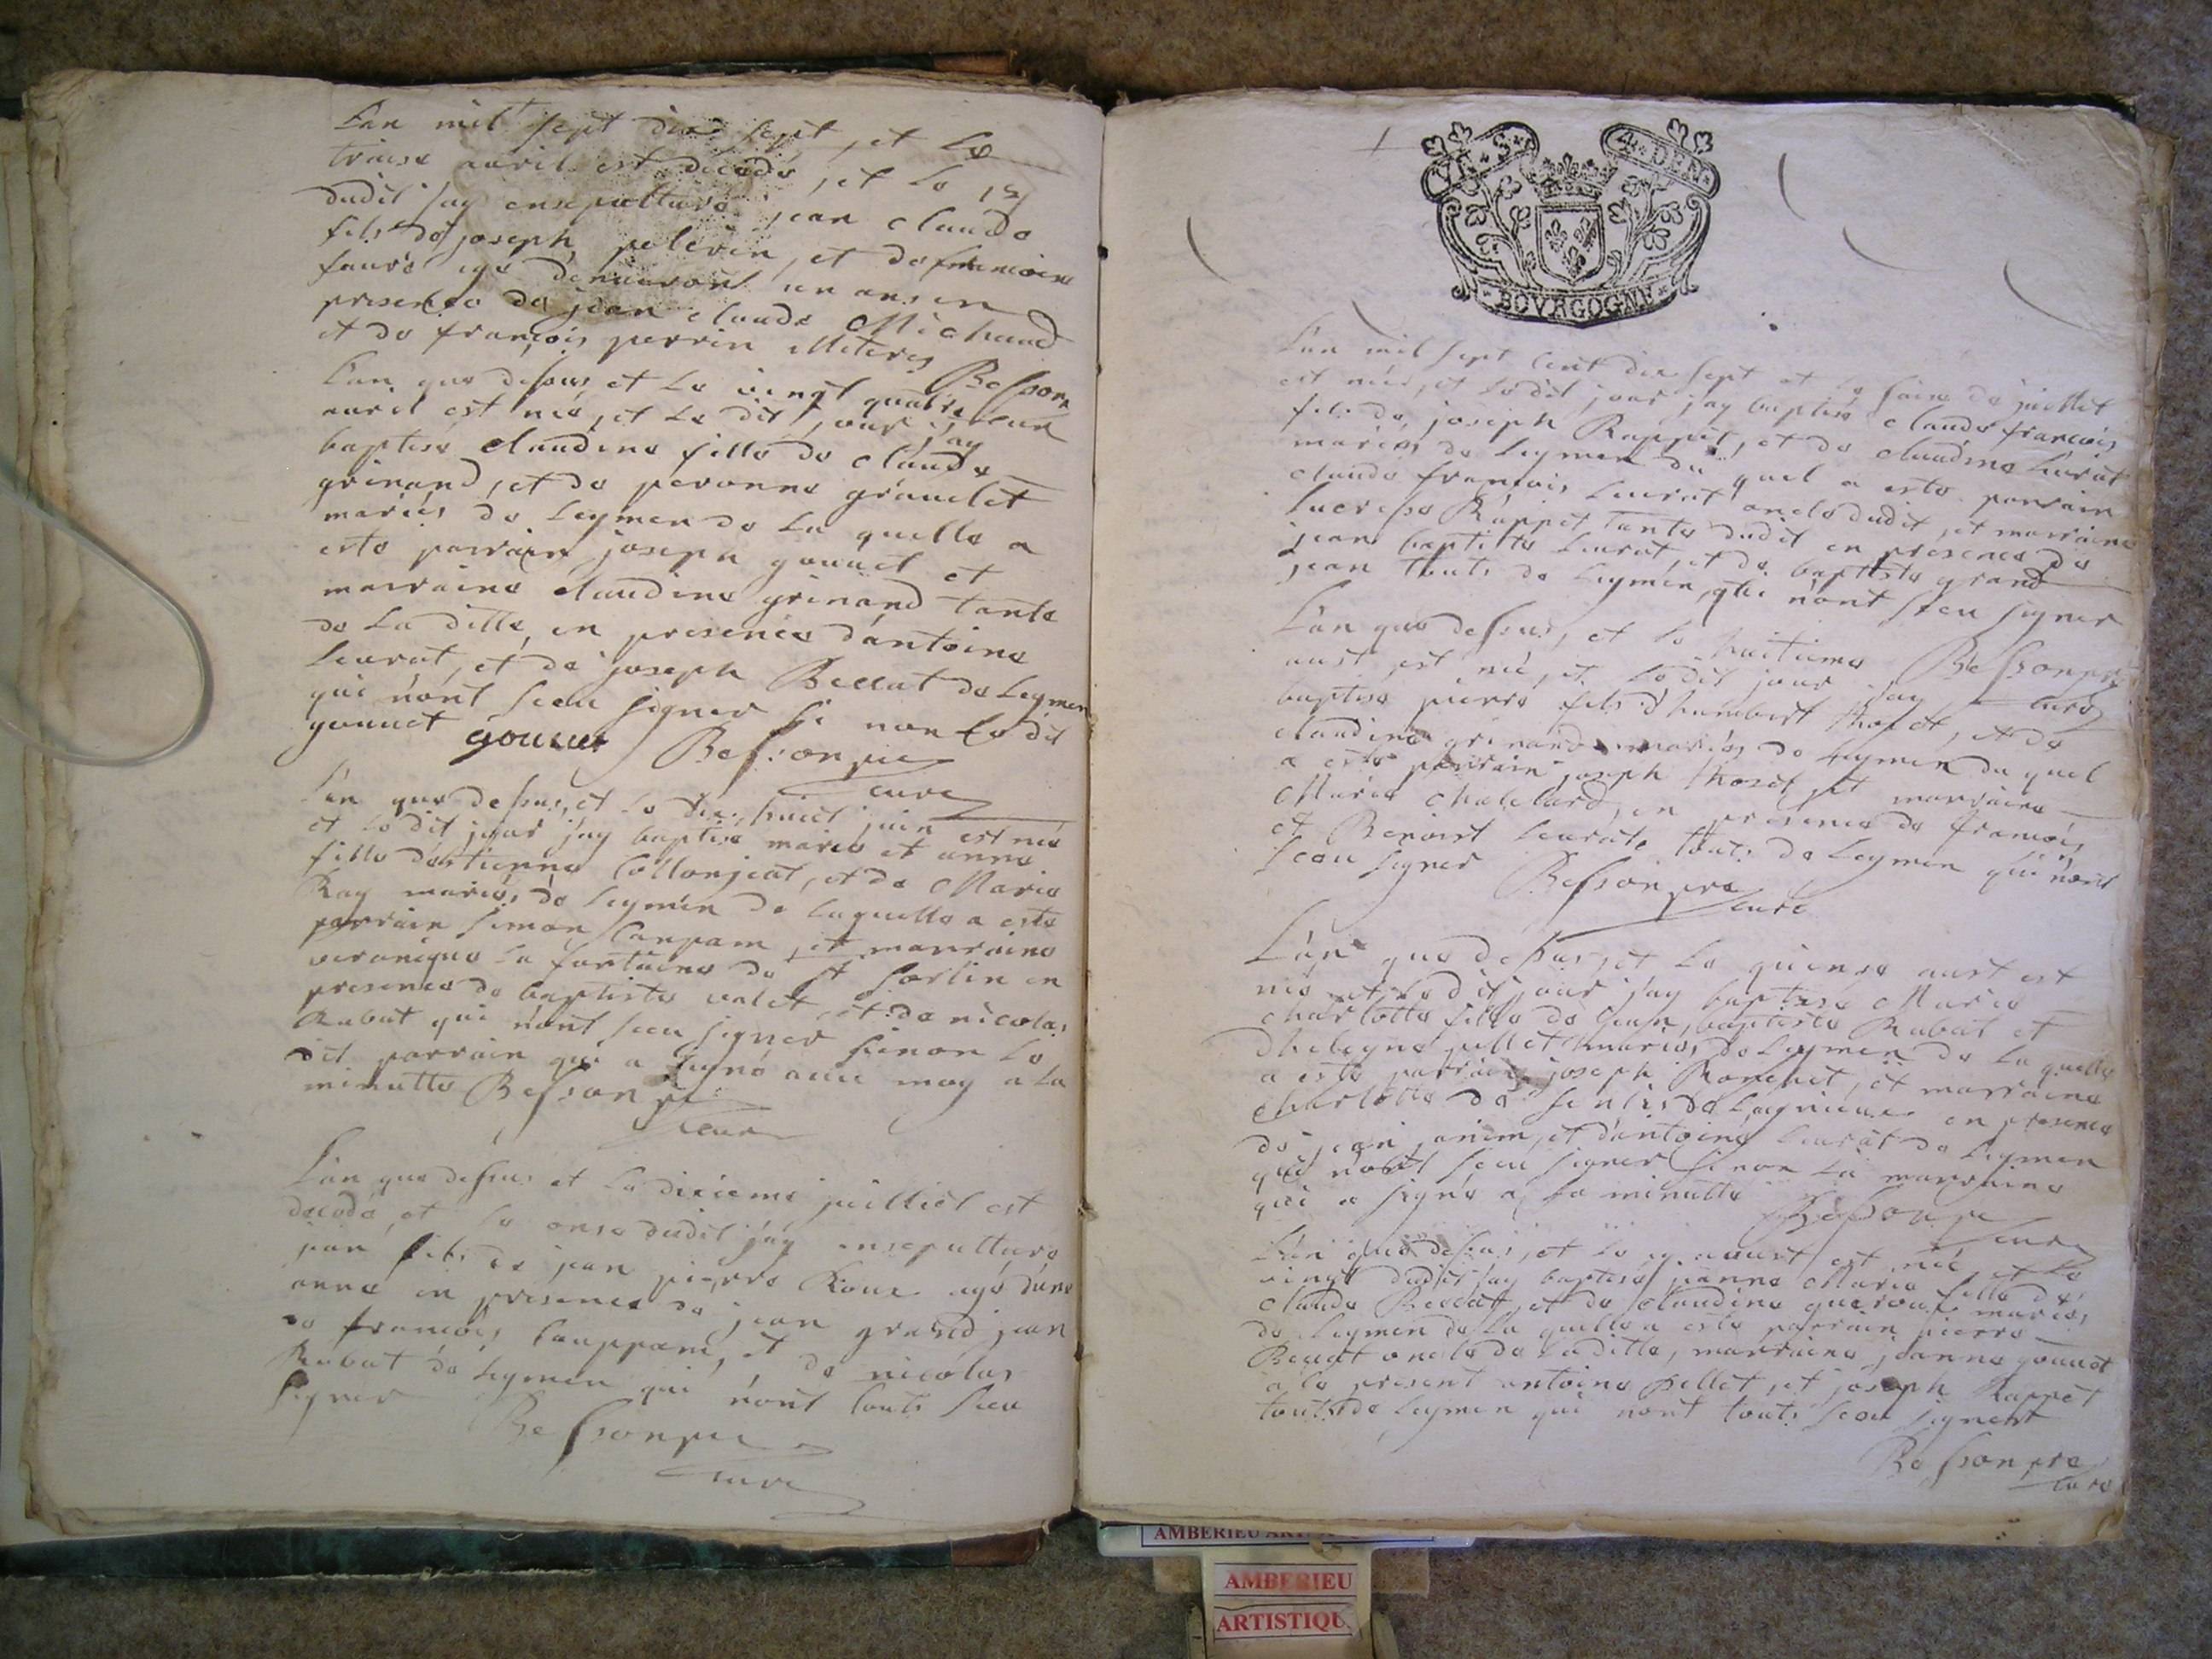 Lan mil sept dix sept, et le
treise auril est decedé, et le 14
dudit jay ensepulturé jean claude
fils de joseph pelerin, et de francoise
faure agé denuiron un ans en
presence de jean claude Michaud
et de françois perrin illiteres
Besson
curé
Lan que dessus et le vingt quatre
auril est née, et le dit jour jay
baptisé claudine fille de claude
grinand, et de peronne grauelet
mariés de Leymen de la quelle a
esté parrain joseph gouuet et
marraine claudine grinand tante
de la ditte, en presence dantoine
Leurat, et de joseph Beccat de Leymen
qui nont sceu signer si non le dit
gouuet gouuet Besson pre
curé
Lan que dessus, et le dix huict juin est née
et le dit jour jay baptisé marie et anne
fille destienne Collonjeat, et de Marie
Ray mariés de Leymen de laquelle a esté
parrain simon Campam, et marraine
veronique la fontaine de st sorlin en
presence de baptiste valet, et de nicolas
Rubat qui nont sceu signer sinon le
dit parrain qui a signé auec moy a la
minutte Besson pre
curé
Lan que dessus et le dixieme juilliet est
decedé, et le onse dudit jay ensepulturé
jean fils de jean pierre Roux agé dune
anné en presence de jean grand jean
de francois Campam, et de nicolas
Rubat de Leymen qui nont touts sceu
signer Besson pre
curé
VN · S · 4 · DEN ·
BOVRGOGNE
Lan mil sept cent dix sept et le saise de juilliet
est née, et le dit jour jay baptisé claude francois
fils de joseph Rappet, et de claudine Leurat
mariés de Leymen du quel a esté parrain
claude francois Leurat oncle dudit, et marraine
Lucresse Rappet tante dudit en presence de
jean baptiste Leurat, et de baptiste grand
jean touts de Leymen, qui nont sceu signer
Besson pre
curé
Lan que dessus, et le huitieme
aust est né, et le dit jour jay
baptisé pierre fils dhumbert thoset, et de
claudine grinand mariés de Leymen du quel
a esté parrain joseph thoset, et marraine
Marie chatelard, en presence de francois
et Benoist Leurat, touts de Leymen qui nont
sceu signer Besson pre
curé
Lan que dessus, et le quinse aust est
née et le dit jour jay baptisé Marie
charlotte fille de jean baptiste Rubat et
dheleyne pellet mariés de Leymen de la quelle
a esté parrain joseph Ronchet, et marraine
charlotte de senlis de Lagnieux en presence
de jean janin, et dantoine Leurat de Leymen
qui nont sceu signer sinon la marraine
qui a signé a la minutte Besson pre
curé
Lan que dessus, et le 19 auust est née, et le
vingt dudit jay baptisé jeanne Marie fille de
claude Beccat, et de claudine mariés
de Leymen de la quelle a esté parrain pierre
Beccat oncle de la ditte, marraine jeanne gouuet
a ce present antoine pellet, et joseph Rappet
touts de Leymen qui nont touts sceu signer
Besson pre
curé
AMBERIEU
AMBERIEU
ARTISTIQU